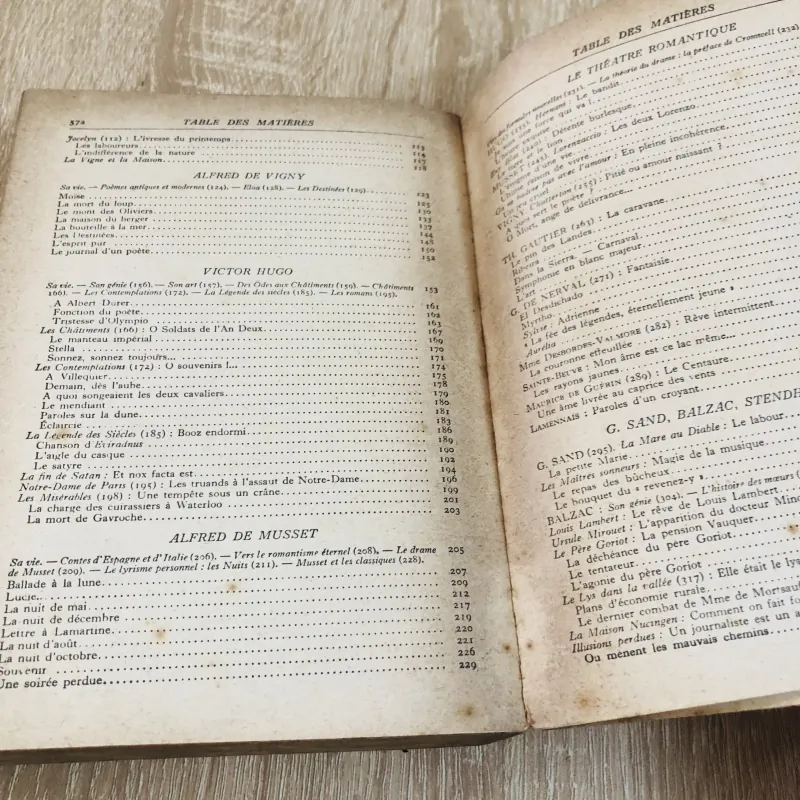 372 TABLE DES MATIÈRES
Jocelyn (112) : L'ivresse du printemps
Les laboureurs 113
L'indifférence de la nature 114
La Vigne et la Maison 117
118
ALFRED DE VIGNY
Sa vie. — Poèmes antiques et modernes (124). — Eloa (128). — Les Destinées (129).
Moïse 123
La mort du loup 125
Le mont des Oliviers 130
La maison du berger 133
La bouteille à la mer 137
Les Destinées 144
L'esprit pur 148
Le journal d'un poète 150
152
VICTOR HUGO
Sa vie. — Son génie (156). — Son art (157). — Des Odes aux Châtiments (159). — Châtiments 153
166). — Les Contemplations (172). — La Légende des siècles (185). — Les romans (195).
A Albert Durer 161
Fonction du poète 162
Tristesse d'Olympio 163
Les Châtiments (166) : O Soldats de l'An Deux 167
Le manteau impérial 169
Stella 170
Sonnez, sonnez toujours... 171
Les Contemplations (172) : O souvenirs !... 174
A Villequier 175
Demain, dès l'aube 178
A quoi songeaient les deux cavaliers 179
Le mendiant 180
Paroles sur la dune 181
Éclaircie 183
La Légende des Siècles (185) : Booz endormi 186
Chanson d'Eviradnus 189
L'aigle du casque 190
Le satyre 192
La fin de Satan : Et nox facta est 194
Notre-Dame de Paris (195) : Les truands à l'assaut de Notre-Dame 196
Les Misérables (198) : Une tempête sous un crâne 199
La charge des cuirassiers à Waterloo 201
La mort de Gavroche 203
ALFRED DE MUSSET
Sa vie. — Contes d'Espagne et d'Italie (206). — Vers le romantisme éternel (208). — Le drame 205
de Musset (209). — Le lyrisme personnel : les Nuits (211). — Musset et les classiques (228).
Ballade à la lune 207
Lucie 209
La nuit de mai 212
La nuit de décembre 217
Lettre à Lamartine 219
La nuit d'août 220
La nuit d'octobre 221
Souvenir 226
Une soirée perdue 229
TABLE DES MATIÈRES
LE THÉATRE ROMANTIQUE
formules nouvelles (231). — La théorie du drame : la préface de Cromwell (232)
HUGO Hernani : Le bandit
force qui va !
Détente burlesque
MUSSET Lorenzaccio : Les deux Lorenzo
d'une vie
raison de vivre
badine pas avec l'amour : En pleine incohérence
Pitié ou amour naissant ?
VIGNY. Chatterton (255) :
A quoi sert le poète ?
O Mort, ange de délivrance
TH. GAUTIER (263) : La caravane
Le pin des Landes
Ribeira
Dans la Sierra. Carnaval
Symphonie en blanc majeur
L'art
G. DE NERVAL (271) : Fantaisie
El Desdichado
Myrtho
Sylvie : Adrienne
« La fée des légendes, éternellement jeune »
Aurélia
Mme DESBORDES-VALMORE (282) : Rêve intermittent
La couronne effeuillée
SAINTE-BEUVE : Mon âme est ce lac même...
Les rayons jaunes
MAURICE DE GUÉRIN (289) : Le Centaure
Une âme livrée au caprice des vents
LAMENNAIS : Paroles d'un croyant
G. SAND, BALZAC, STENDH
G. SAND (295). La Mare au Diable : Le labour
La petite Marie
Les Maîtres sonneurs : Magie de la musique
Le repas des bûcheux
Le bouquet du « revenez-y »
BALZAC : Son génie (304). — L'histoire des mœurs (
Louis Lambert : Le rêve de Louis Lambert
Ursule Mirouet : L'apparition du docteur Mino
Le Père Goriot : La pension Vauquer
La déchéance du père Goriot
Le tentateur
L'agonie du père Goriot
Le Lys dans la vallée (317) : Elle était le lys
Plans d'économie rurale
Le dernier combat de Mme de Mortsauf
La Maison Nucingen : Comment on fait fo
Illusions perdues : Un journaliste est un a
Ou mènent les mauvais chemins